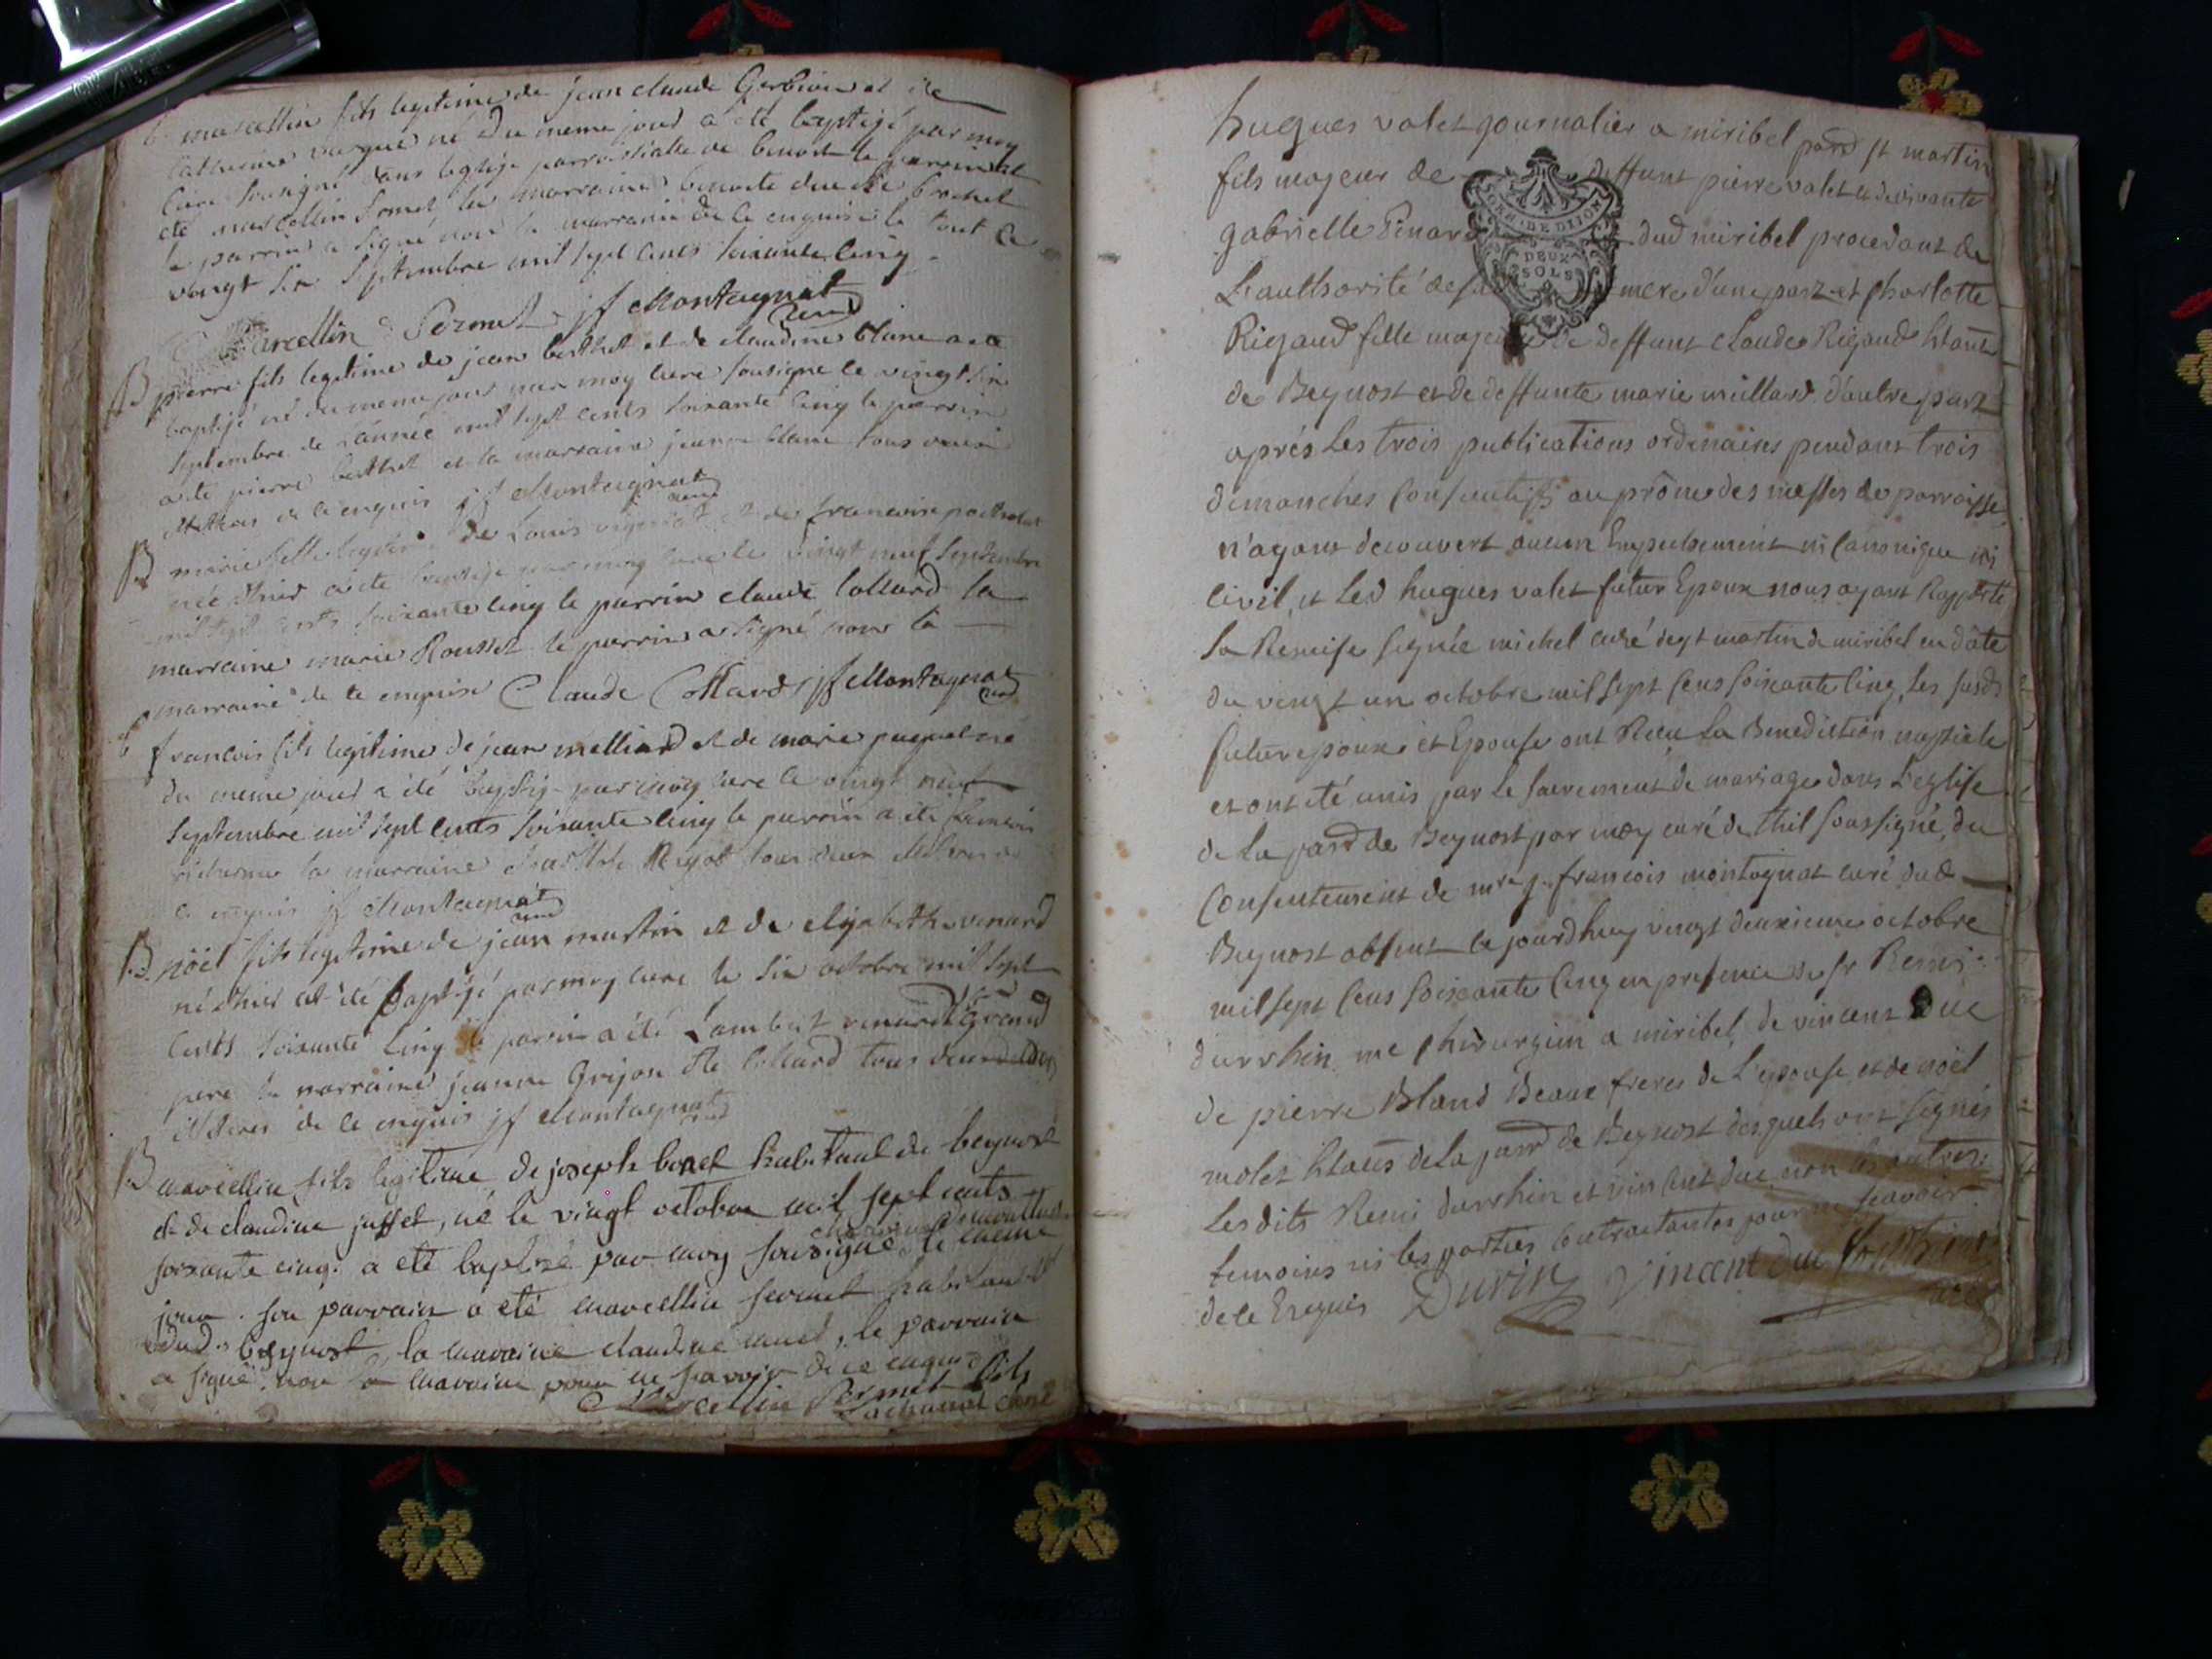 marcellin fils legitime de jean claude Gerbier et de
catherine né du meme jour a été baptisé par moy
curé sousigné dans leglise parroissialle de benost le parrein at
été marcellin Sermet la marraine benoite
le parrin a signé non la marraine de ce enquise le tout ce
vingt six septembre mil sept cents soixante cinq
marcellin Sermet jf Montagnat
curé
B pierre fils legitime de jean berthet et de claudine blanc a été
baptisé né du meme jour par moy curé sousigné le vingt six
septembre de l'année mil sept cents soixante cinq le parrin
a été pierre berthet et la marraine jeanne blanc tous deux
illettres de ce enquis jf Montagnat
curé
B marie fille legitime de Louis et de francoise
née d'hier a été baptisé par moy curé le vingt neuf septembre
mil sept cents soixante cinq le parrin claude collard la
marraine marie Rousset le parrin a signé non la
marraine de ce enquise Claude Collard jf Montagnat
curé
B francois fils legitime de jean melliard et de marie paquet né
du meme jour a été baptisé par moy curé le vingt neuf
septembre mil sept cents soixante cinq le parrin a été francois
la marraine tous deux
ce enquis jf Montagnat
curé
B nöel fils legitime de jean martin et de elizabeth venard
né d'hier at été baptisé par moy curé le six octobre mil sept
cents soixante cinq le parrin a été Lambert venard grand
pere la marraine jeanne Grijon collard tous deux
illeteres de ce enquis jf Montagnat
curé
B marcellin fils legitime de joseph bonet habitant de beynost
et de claudine juffet, né le vingt octobre mil sept cents
soixante cinq. a eté baptisé par moy sousigné le meme
jour. son parrain a eté marcellin sermet habitant
dud. beynost, la maraine claudine, le parrain
a signé, non la maraine pour ne savoir de ce enquis
Marcellin Sermet fils
curé
hugues valet journalier a miribel parr st martin
fils majeur de deffunt pierre valet et de vivante
GEN. DE DIJON
DEUX
SOLS
gabrielle Pinard dud miribel procedant de
L'authorité de sa mere d'une part et Charlotte
Rigaud fille majeure de deffunt claude Rigaud htant
de Beynost et de deffunte marie miillard d'autre part
aprés Les trois publications ordinaires pendant trois
dimanches Consecutifs au prône des messes de parroisse
n'ayant decouvert aucun Empechement ni Canonique ni
Civil, et Led hugues valet futur Epoux nous ayant Rapporté
la Remise signée michel curé de st martin de miribel en date
du vingt un octobre mil sept Cens soixante Cinq, les susds
futur epoux et Epouse ont Recu La Benediction nuptiale
et ont été unis par le sacrement de mariage dans L'eglise
de La parr de Beynost par moy curé de thil soussigné, du
Consentement de mre j. francois montagnat curé dud
Beynost absent ce jourd'huy vingt deuxieme octobre
mil sept Cens soixante Cinq en presence de sr Remi
durrhin me Chirurgien a miribel, de vincent Duc
de pierre Bland Beaux freres de L'epouse et de nöel
molet htans de La parr de Beynost desquels ont signés
Lesdits Remi durrhin et vincent duc non les autres
temoins ni les parties Contractantes pour ne scavoir
de ce Enquis Durin vincent duc
curé